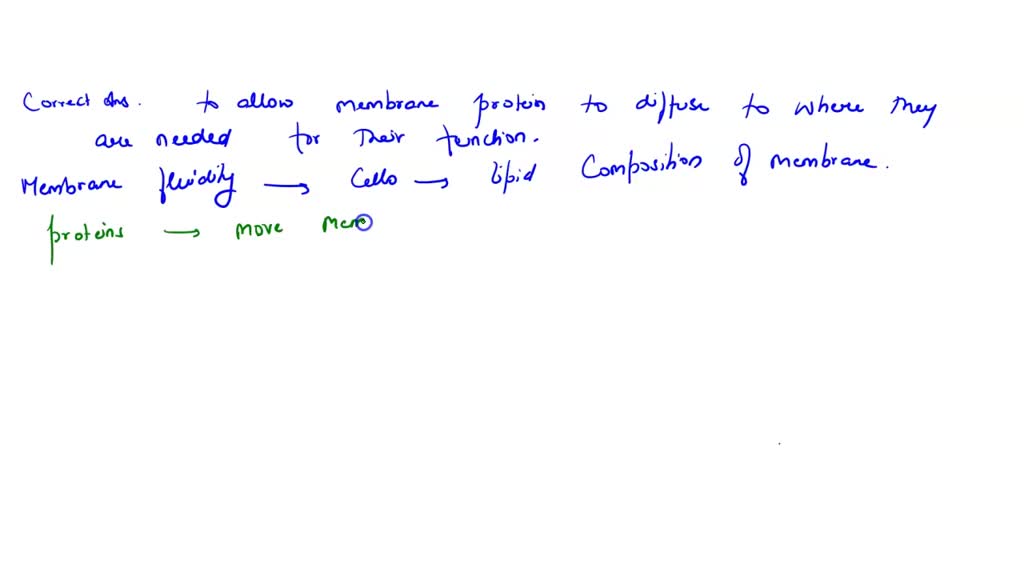 Correct Ans. to allow membrane protein to diffuse to where they
are needed for their function.
Membrane fluidity → Cells → lipid Composition of membrane.
proteins → move mem